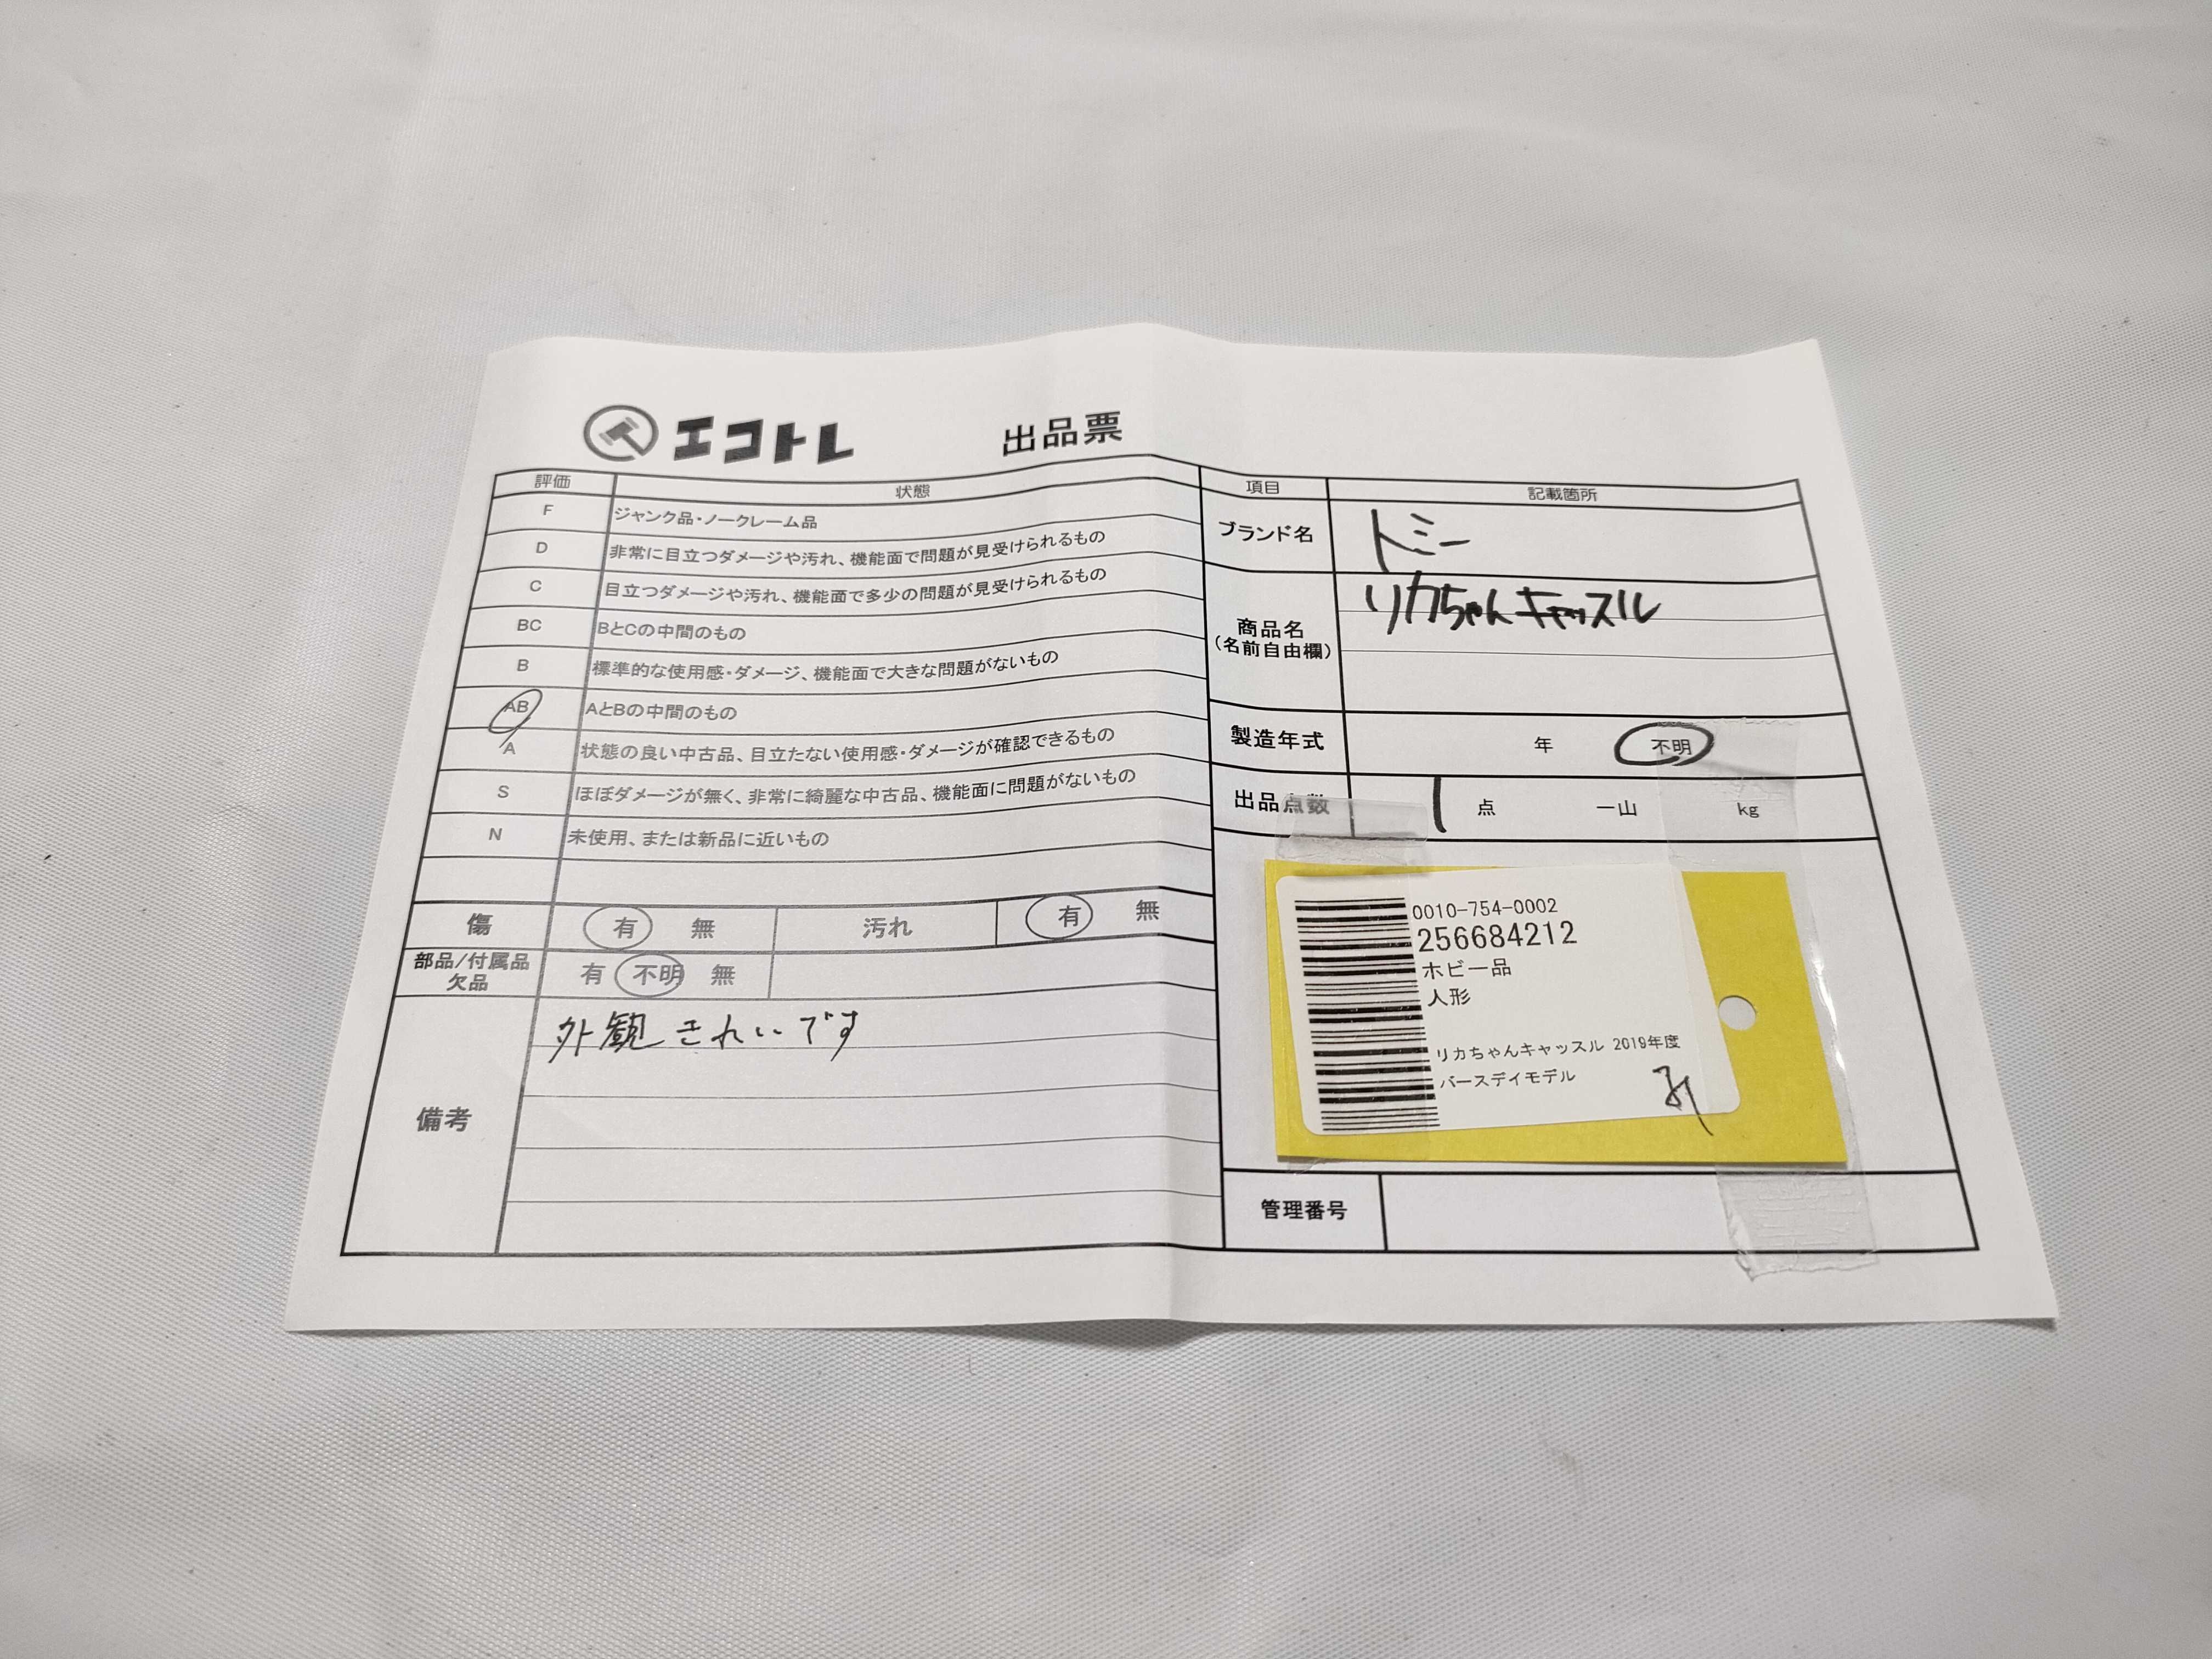 エコトレ 出品票
評価 状態
F ジャンク品・ノークレーム品
D 非常に目立つダメージや汚れ、機能面で問題が見受けられるもの
C 目立つダメージや汚れ、機能面で多少の問題が見受けられるもの
BC BとCの中間のもの
B 標準的な使用感・ダメージ、機能面で大きな問題がないもの
AB AとBの中間のもの
A 状態の良い中古品、目立たない使用感・ダメージが確認できるもの
S ほぼダメージが無く、非常に綺麗な中古品、機能面に問題がないもの
N 未使用、または新品に近いもの
傷 有 無 汚れ 有 無
部品/付属品
欠品
有 不明 無
備考
外観きれいです
項目 記載箇所
ブランド名 トミー
商品名
(名前自由欄)
リカちゃんキャッスル
製造年式 年 不明
出品点数 1 点 一山 kg
0010-754-0002
256684212
ホビー品
人形
リカちゃんキャッスル 2019年度
バースデイモデル
管理番号